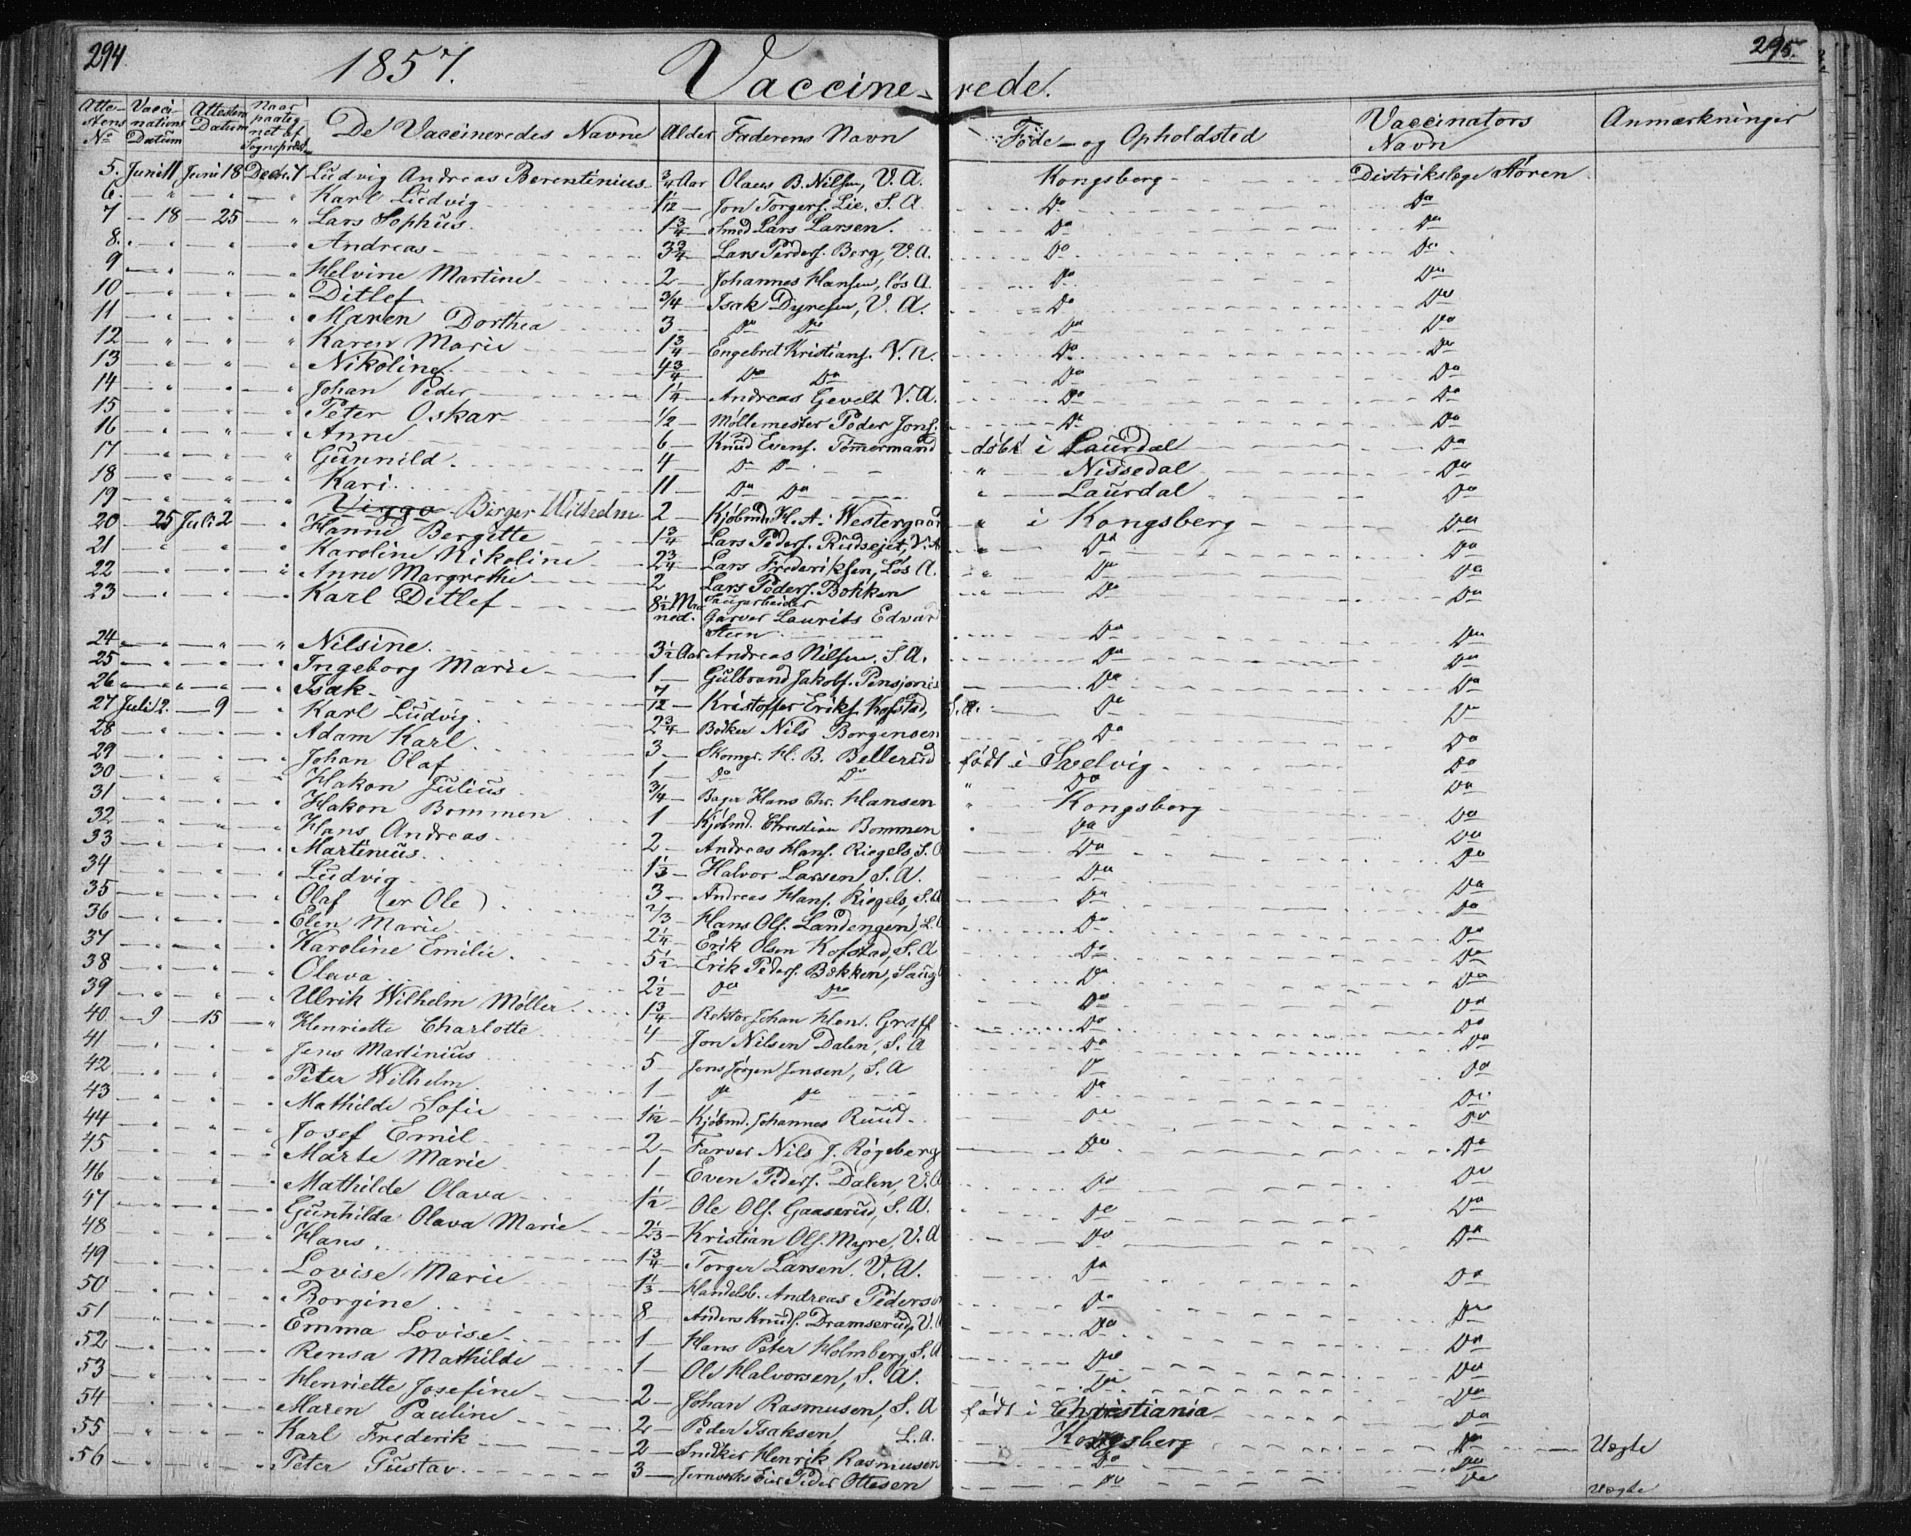 294. 1857. Vaccine- rede. 295.
Atte- stens No Vacci- nations Datum Attesten Datum Naar paateg- net af Sognepræst De Vaccineredes Navne Alder Faderens Navn Føde- og Opholdsted Vaccinators Navn Anmærkninger
5. Juni 11 Juni 18 Decbr. 7 Ludvig Andreas Berentinius 3/4 Aar Olaus B. Nilsen, V. A. Kongsberg Distriktslæge Høren
6 " " " Karl Ludvig 1/12 Jon Torgers. Lie. S. A. Do Do
7 18 25 " Lars Sophus 1 3/4 Smed Lars Larsen. Do Do
8. " " " Andreas 3 3/4 Lars Peders. Berg, V. A. Do Do
9 " " " Helvine Martine 2 Johannes Hansen, løs A. Do Do
10 " " " Ditlef 3/4 Isak Dyresen, V. A. Do Do
11 " " " Maren Dorthea 3 Do Do Do Do
12 " " " Karen Marie 1 3/4 Engebret Kristians. V. A. Do Do
13 " " " Nikoline 4 3/4 Do Do Do Do
14 " " " Johan Peder 1 1/4 Andreas Gevelt V. A. Do Do
15 " " " Peter Oskar 1/2 Møllemester Peder Jons. Do Do
16 " " " Anne 6 Knud Evens. Tømmermand døbt i Laurdal Do
17 " " " Gunnild. 4 Do Do " Nissedal Do
18 " " " Kari 11 Do Do " Laurdal Do
19 " " " Viggo Birger Wilhelm 2 Kjøbmd. H. A. Westergaar " i Kongsberg Do
20 25 Juli 2 " Hanne Bergitte 1 3/4 Lars Peders. Rudsejet, V. A " Do Do
21 " " " Karoline Nikoline 2 3/4 Lars Frederiksen, Løs A. " Do Do
22 " " " Anne Margrethe 2 Lars Peders. Bækken Saugarbeider Do Do
23 " " " Karl Ditlef 8 1/2 Maa ned. Garver Laurits Edvar Steen Do Do
24 " " " Nilsine. 3 1/2 Aar Andreas Nilsen. S. A. Do Do
25 " " " Ingeborg Marie 1 Gulbrand Jakobs. Pensjonis Do Do
26 " " " Isak 7/12 Kristoffer Eriks. Kofstad, S. A. Do Do
27 Juli 2. 9 " Karl Ludvig. 2 3/4 Bødker Nils Borgensen Do Do
28 " " " Adam Karl. 3 Skomgr. H. B. Bellerud født i Svelvig Do
29 " " " Johan Olaf 1 Do Do " Do Do
30 " " " Hakon Julius 3/4 Bager Hans Chr. Hansen " Kongsberg Do
31 " " " Hakon Bommen 1 Kjøbmd. Christian Bommen " Do Do
32 " " " Hans Andreas 2 Andreas Hans. Riegels, S. A Do Do
33 " " " Martinius 1 1/3 Halvor Larsen S. A. Do Do
34 " " " Ludvig 3 Andreas Hans. Riegels, S. A Do Do
35 " " " Olaf (er Ole) 2/3 Hans Ols. Landengen, L. A Do Do
36 " " " Elen Marie 2 1/4 Erik Olsen Kofstad, S. A Do Do
37 " " " Karoline Emilie. 5 1/2 Erik Peders. Bækken, Saug Do Do
38 " " " Olava 2 1/2 Do Do Do Do
39 " " " Ulrik Wilhelm Møller 1 3/4 Rektor Johan Hen. Graff Do Do
40 9 15 " Henriette Charlotte 4 Jon Nilsen Dalen, S. A Do Do
41 " " " Jens Martinius 5 Jens Jørgen Jensen, S. A Do Do
42 " " " Peter Wilhelm. 1 Do Do Do Do
43 " " " Mathilde Sofie 1 1/2 Kjøbmd. Johannes Ruud. Do Do
44 " " " Josef Emil 2 Farver Nils J. Røgeberg Do Do
45 " " " Marte Marie 1 Even Peders. Dalen, V. A Do Do
46 " " " Mathilde Olava 1 1/2 Ole Ols. Gaaserud, S. A. Do Do
47 " " " Gunhilda Olava Marie 2 1/3 Kristian Ols. Myre, V. A Do Do
48 " " " Hans. 1 3/4 Torger Larsen. V. A. Do Do
49 " " " Lovise Marie 1 1/3 Handelsb. Andreas Pederse Do Do
50 " " " Borgine 8 Anders Knuds. Dramserud, V. A Do Do
51 " " " Emma Lovise 1 Hans Peter Holmberg S. A Do Do
52 " " " Rensa Mathilde 1 Ole Halvorsen, S. A. Do Do
53 " " " Henriette Josefine 2 Johan Rasmusen, S. A født i Christiania Do
54 " " " Maren Pauline 2 Peder Isaksen, L. A. Kongsberg Do Uægte
55 " " " Karl Frederik 2 Snedker Henrik Rasmusen Do Do
56 " " " Peter Gustav 3 Jernverks Eier Peder Ottesen Do Do Uægte